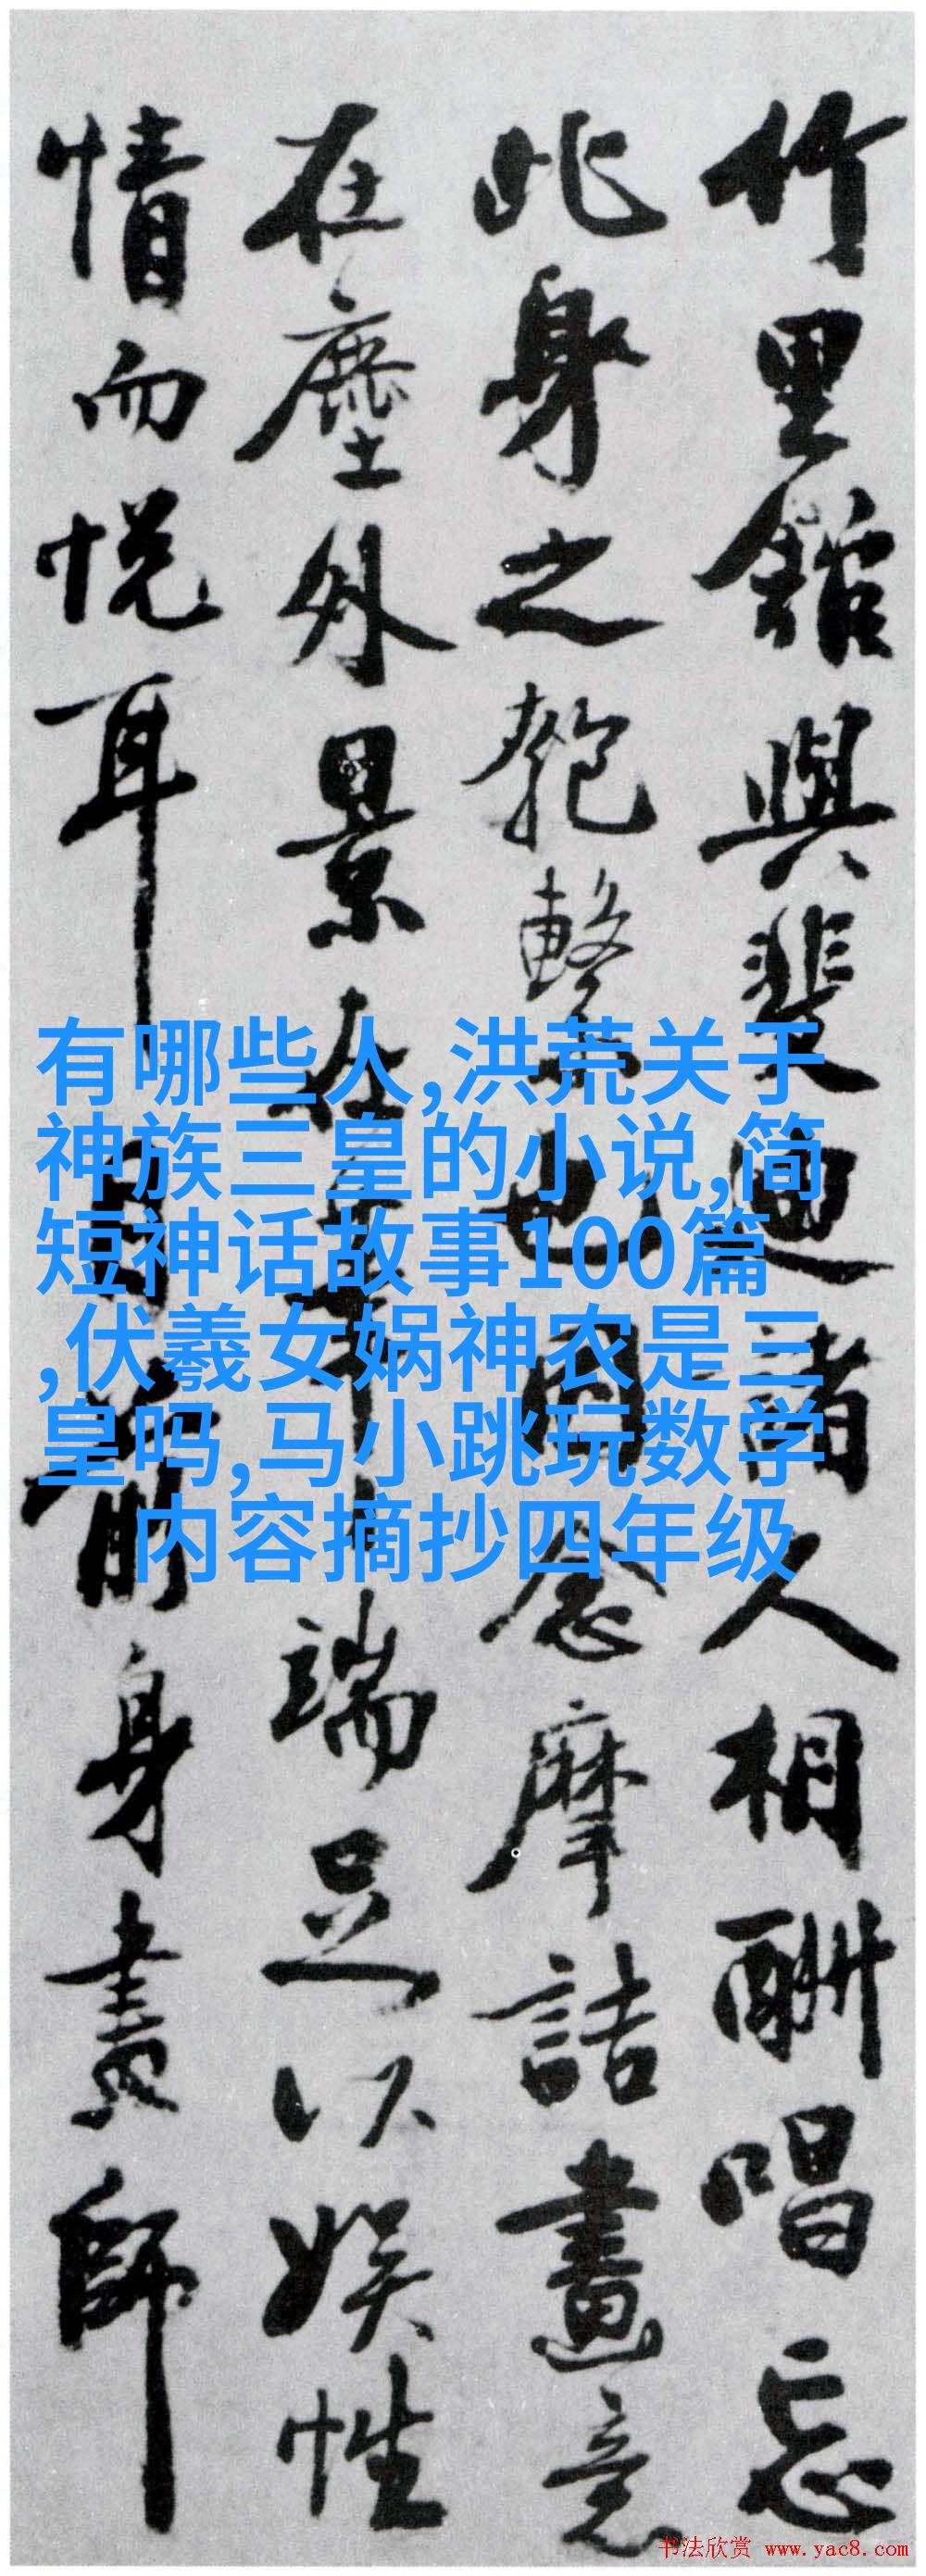 竹里館與裴迪諸人相酬唱忘
此身之匏繫也因念摩詰畫意
在塵外景在筆端足以娛性
情而悅耳目前身畫師
有哪些人,洪荒关于
神族三皇的小说,简
短神话故事100篇
,伏羲女娲神农是三
皇吗,马小跳玩数学
内容摘抄四年级
书法欣赏 www.yac8.com